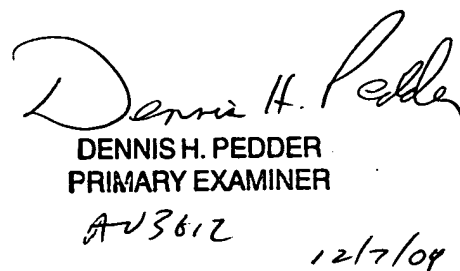 Dennis H. Pedder
DENNIS H. PEDDER
PRIMARY EXAMINER
AU3612
12/7/04